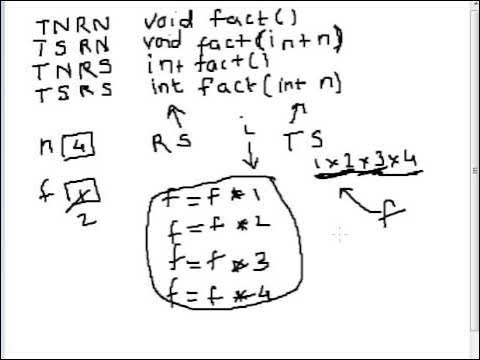 TNRN void fact()
TSRN void fact(int n)
TNRS int fact()
TSRS int fact(int n)
RS i TS
n 4
1*2*3*4
f 1
2
f
f=f*1
f=f*2
f=f*3
f=f*4